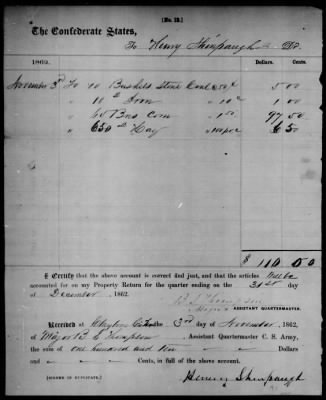 [No. 12.]
The Confederate States,
To Henry Shinpaugh Dr.
1862. Dollars. Cents.
November 3rd To 10 Bushels Stone Coal @ 50¢ 5 00
" 10 lb Iron " 10¢ 1 00
" 65 Bus Corn " 1.50 97 50
" 650 lb Hay " 6 50
$ 110 00
I Certify that the above account is correct and just, and that the articles will be
accounted for on my Property Return for the quarter ending on the 31st day
of December 1862.
Thompson
Major & ASSISTANT QUARTERMASTER.
Received at the 3rd day of November, 1862,
of Major B. Thompson, Assistant Quartermaster C. S. Army,
the sum of one hundred and ten Dollars
and Cents, in full of the above account.
[SIGNED IN DUPLICATE.]
Henry Shinpaugh